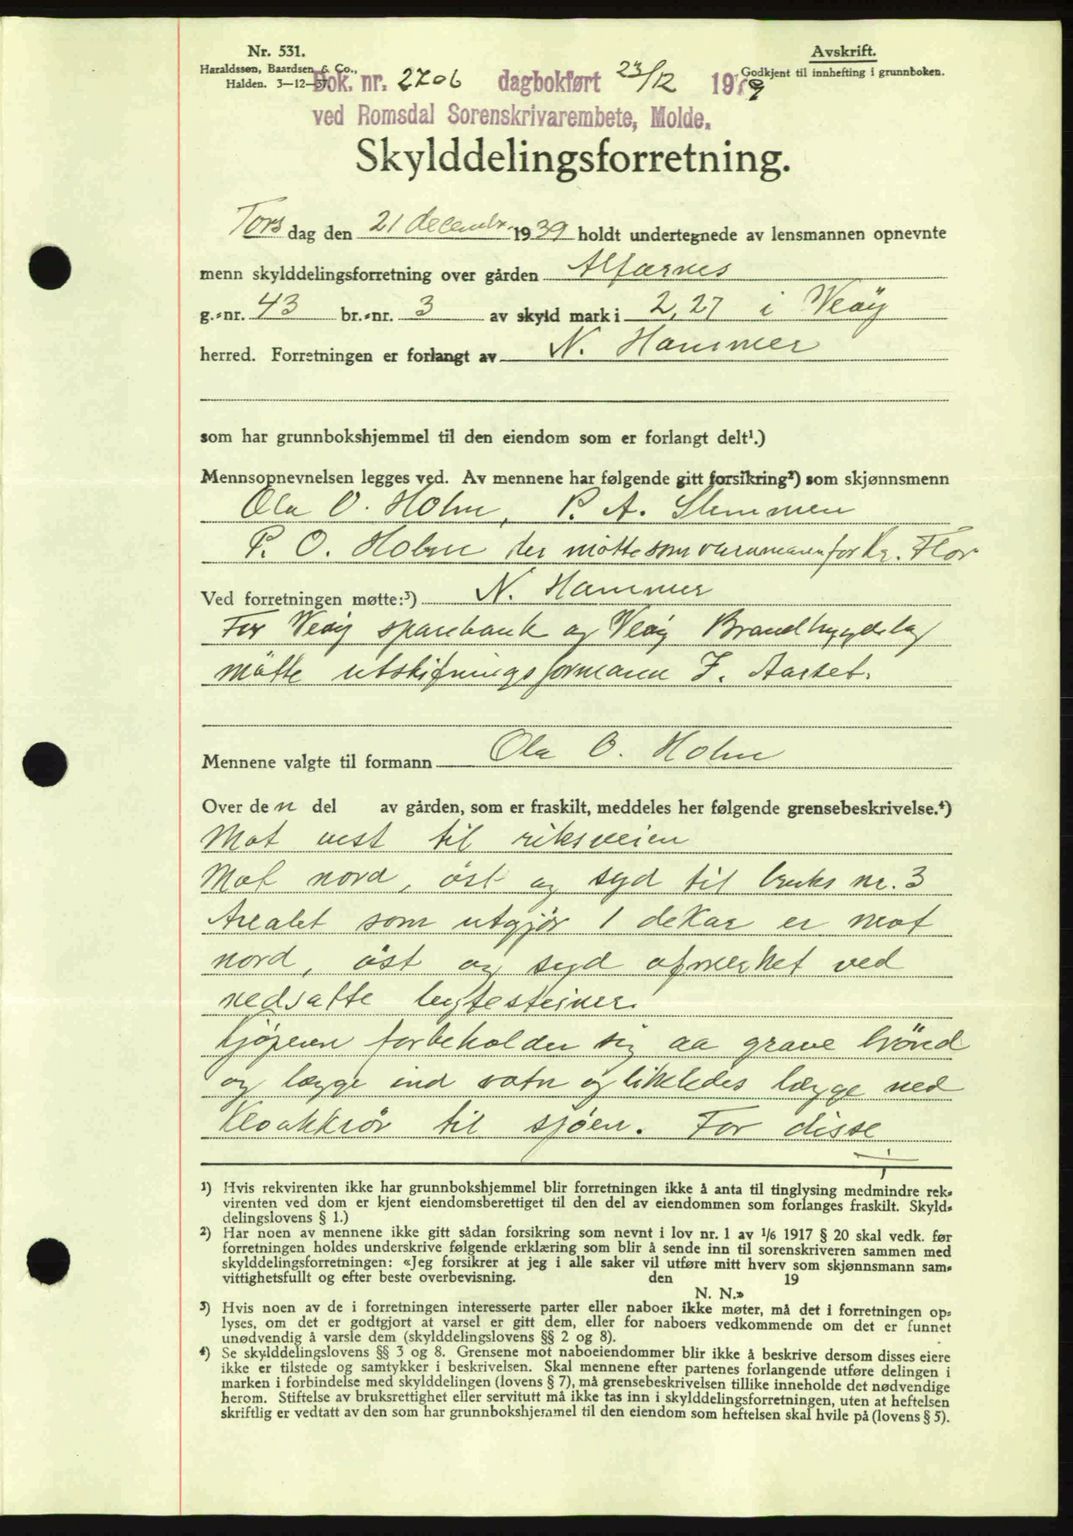 Nr. 531.
Haraldssen, Baardsen & Co.,
Halden. 3—12—37.
Avskrift.
Godkjent til innhefting i grunnboken.
Dok. nr. 2706 dagbokført 23/12 1939
ved Romsdal Sorenskrivarembete, Molde.
Skylddelingsforretning.
Tors dag den 21 decembr. 1939 holdt undertegnede av lensmannen opnevnte
menn skylddelingsforretning over gården Alfærnes
g.-nr. 43 br.-nr. 3 av skyld mark i 2,27 i Veøy
herred. Forretningen er forlangt av N. Hammer
som har grunnbokshjemmel til den eiendom som er forlangt delt¹.)
Mennsopnevnelsen legges ved. Av mennene har følgende gitt forsikring²) som skjønnsmenn
Ola O. Holm, P. A. Slemmen
P. O. Holm der møtte som varamann for Kr. Flor
Ved forretningen møtte:³) N. Hammer
For Veøy sparebank og Veøy Brandbygdelag
møtte utskiftningsformann J. Aarset.
Mennene valgte til formann Ola O. Holm
Over den del av gården, som er fraskilt, meddeles her følgende grensebeskrivelse.⁴)
Mot vest til riksveien
Mot nord, øst og syd til bruks nr. 3
Arealet som utgjør 1 dekar er mot
nord, øst og syd afmerket ved
nedsatte bytesteiner.
Kjøperen forbeholder sig aa grave brønd
og lægge ind vatn og likeledes lægge ned
kloakkrør til sjøen. For disse
¹) Hvis rekvirenten ikke har grunnbokshjemmel blir forretningen ikke å anta til tinglysing medmindre rek-
virenten ved dom er kjent eiendomsberettiget til den del av eiendommen som forlanges fraskilt. Skyld-
delingslovens § 1.)
²) Har noen av mennene ikke gitt sådan forsikring som nevnt i lov nr. 1 av 1/6 1917 § 20 skal vedk. før
forretningen holdes underskrive følgende erklæring som blir å sende inn til sorenskriveren sammen med
skylddelingsforretningen: «Jeg forsikrer at jeg i alle saker vil utføre mitt hverv som skjønnsmann sam-
vittighetsfullt og efter beste overbevisning. den 19
N. N.»
³) Hvis noen av de i forretningen interesserte parter eller naboer ikke møter, må det i forretningen op-
lyses, om det er godtgjort at varsel er gitt dem, eller for naboers vedkommende om det er funnet
unødvendig å varsle dem (skylddelingslovens §§ 2 og 8).
⁴) Se skylddelingslovens §§ 3 og 8. Grensene mot naboeiendommer blir ikke å beskrive dersom disses eiere
ikke er tilstede og samtykker i beskrivelsen. Skal mennene efter partenes forlangende utføre delingen i
marken i forbindelse med skylddelingen (lovens § 7), må grensebeskrivelsen tillike inneholde det nødvendige
herom. Stiftelse av bruksrettighet eller servitutt må ikke tas inn i skylddelingsforretningen, uten at heftelsen
skriftlig er vedtatt av den som har grunnbokshjemmel til den eiendom som heftelsen skal hvile på (lovens § 5).